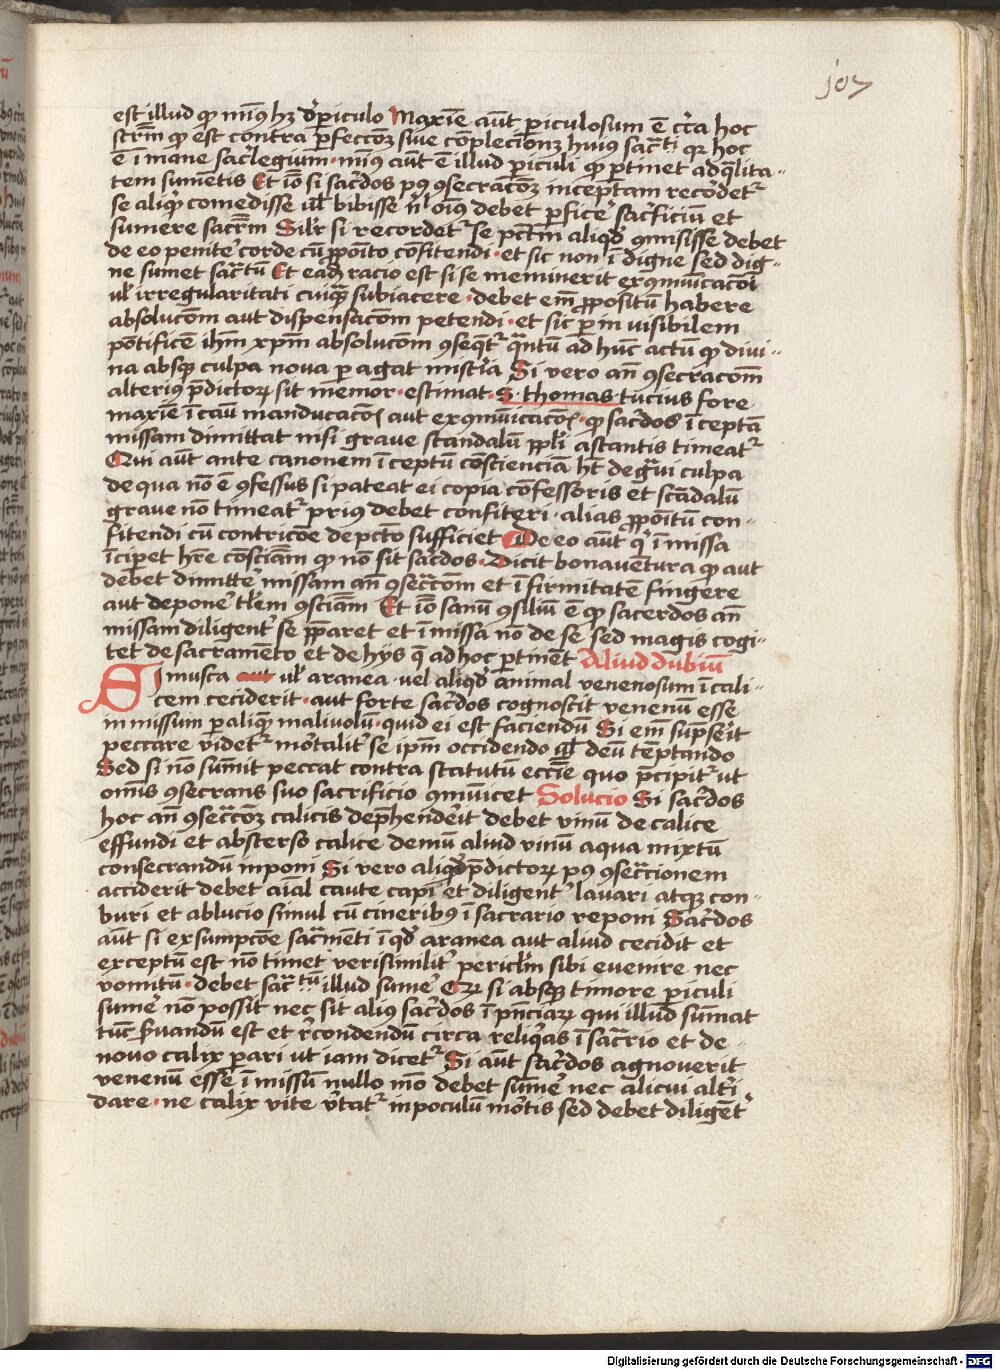 107
est illud qꝫ minꝰ hꝫ de piculo Maxīe aūt piculosum ē cͥca hoc
scͥm qꝫ est contra pfeccōꝫ siue cōplecionꝫ huiꝰ sacͣti qꝛ hoc
ē īmane sacͥlegium · minꝰ aūt ē illud piculi qꝫ ptinet ad qͣlita-
tem sumētis Et iō si sacͥdos pꝰ ꝯsecracōꝫ inceptam recordetͬ
se aliqͥd comedisse ul bibisse nͥl oīꝰ debet pficͤe sacͥficiū et
sumere sacͣm Silͬr si recordetͬ se pctm̄ aliqd ꝯmisisse debet
de eo penitͤe corde cū ꝓpōito cōfitendi · et sic non īdigne sed dig-
ne sumet sacͣtū Et eadꝫ racio est si se meminerit exꝯmūicacōi
ul irregularitati cuiqͣꝫ subiacere · debet em̄ ꝓpositū habere
absolucōm aut dispensacōm petendi · et sic p in visibilem
pōtificē ihm̄ xpm̄ absolucōm ꝯseqͤtͬ qͣntū ad hūc actū qꝫ divi-
na absqꝫ culpa nova pagat mistͥia Si vero an̄ ꝯsecracom̄
alterius pdictoꝝ sit memor · estimat · S · thomas tucius fore
maxīe ī cāu manducacōs aut exꝯmūicacōs · qꝫ sacͥdos īceptā
missam dimittat nisi graue scandalū ppli astantis timeatͬ
Qui aūt ante canonem īceptū cōscienciā ht de gͣui culpa
de qua nō ē ꝯfessus si pateat ei copia cōfessoris et scādalū
graue nō timeatͬ prius debet confiteri · alias ꝓpōitū con-
fitendi cū contricōe de pcto sufficiet De eo aūt qͥ ī missa
īcipet hre cōsciāciam qꝫ nō sit sacͥdos · Dicit bonauētura qꝫ aut
debet dimittͤe missam an̄ ꝯsecͣcōm et īfirmitatē fingere
aut deponͤe tlem ꝯsciām Et iō sanū ꝯsiliū ē qꝫ sacerdos an̄
missam diligentͬ se pparet et ī missa nō de se sed magis cogi-
tet de sacramēto et de hijs q̄ ad hoc ptinēt Aliud dubiū
Si musca aut ul aranea · uel aliqd animal venenosum ī cali-
cem ceciderit · aut forte sacͥdos cognoscit venenū esse
in missum p aliquē malivolū · quid ei est faciendū Si em̄ supserit
peccare videtͬ mortalitͬ se ipm̄ occidendo ul deū tēptando
Sed si nō sumit peccat contra statutū eccīe quo pcipitͬ ut
omīs ꝯsecrans suo sacrificio ꝯmūicet Solucio Si sacͥdos
hoc an̄ ꝯsecͣcōꝫ calicis dephenderit debet vinū de calice
effundi et absterso calice demū aliud vinū aqua mixtū
consecrandū inponi Si vero aliqd pdictoꝝ pꝰ ꝯsecͣcionem
acciderit debet aīal caute capi et diligentͬ lauari atqꝫ con-
buri et ablucio simul cū cineribꝰ ī sacrario reponi Sacͥdos
aūt si ex sumpcōe sacͣmēti ī qd aranea aut aliud cecidit et
exceptū est nō timet verisimilitͬ periclm̄ sibi evenire nec
vomitū · debet sacͣtū illud sumͤe Qꝛ si absqꝫ timore piculi
sumͤe nō possit nec sit aliꝰ sacͥdos ī pn̄ciaꝝ qui illud sumat
tūc seruandū est et recondendū circa reliqͥas ī sacͣrio et de
novo calix pari ut iam dicetͬ Si aūt sacͥdos agnoverit
venenū esse ī missū nullo mō debet sumͤe nec alicui altͥi
dare · ne calix vite vtatͬ in poculū mortis sed debet diligētͬ
Digitalisierung gefördert durch die Deutsche Forschungsgemeinschaft - DFG